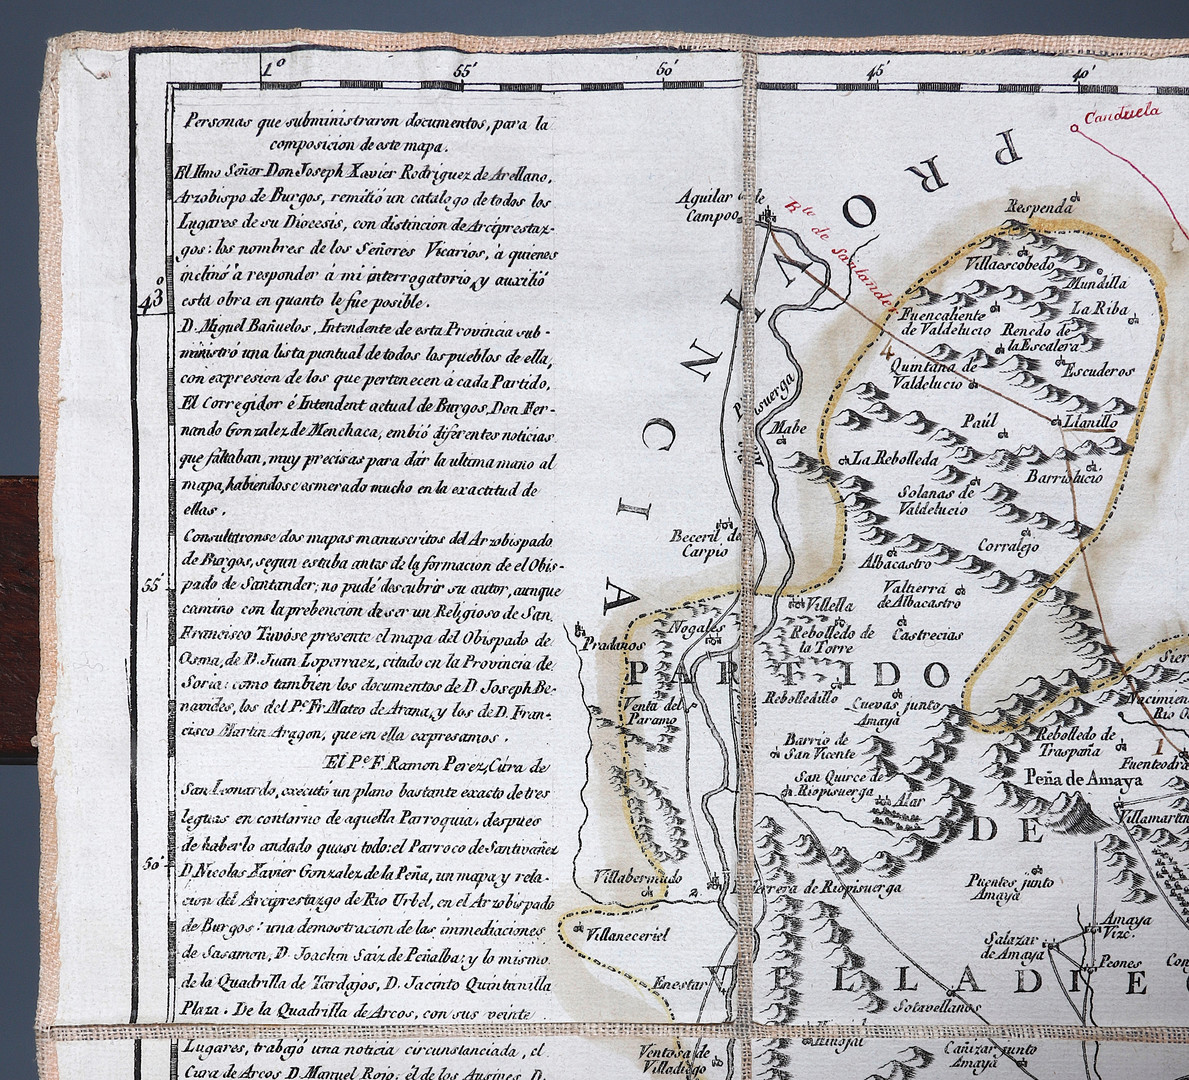 1°
55'
50'
45'
40'
Personas que subministraron documentos, para la
composicion de este mapa.
El Ilmo Señor Don Joseph Xavier Rodriguez de Arellano,
Arzobispo de Burgos, remitió un catalogo de todos los
Lugares de su Diocesis, con distincion de Arciprestaz-
gos: los nombres de los Señores Vicarios, à quienes
inclinó à responder à mi interrogatorio, y auxilió
esta obra en quanto le fue posible.
D. Miguel Bañuelos, Intendente de esta Provincia sub-
ministró una lista puntual de todos los pueblos de ella,
con expresion de los que pertenecen a cada Partido,
El Corregidor é Intendent actual de Burgos, Don Fer-
nando Gonzalez de Menchaca, embió diferentes noticias
que faltaban, muy precisas para dár la ultima mano al
mapa, habiendose esmerado mucho en la exactitud de
ellas.
Consultaronse dos mapas manuscritos del Arzobispado
de Burgos, segun estaba antes de la formacion de el Obis-
pado de Santander; no pude descubrir su autor, aunque
camino con la prebencion de ser un Religioso de San
Francisco Tuvóse presente el mapa del Obispado de
Osma, de D. Juan Loperraez, citado en la Provincia de
Soria: como tambien los documentos de D. Joseph Be-
navides, los del P.e Fr Mateo de Arana, y los de D. Fran-
cisco Martin Aragon, que en ella expresamos.
El P.e F. Ramon Perez, Cura de
San Leonardo, executó un plano bastante exacto de tres
leguas en contorno de aquella Parroquia, despues
de haberlo andado quasi todo: el Parroco de Santivañez
D. Nicolas Xavier Gonzalez de la Peña, un mapa y rela-
cion del Arciprestazgo de Rio Urbel, en el Arzobispado
de Burgos: una demostracion de las immediaciones
de Sasamon, D. Joachin Saiz de Peñalba; y lo mismo
de la Quadrilla de Tardajos, D. Jacinto Quintanilla
Plaza. De la Quadrilla de Arcos, con sus veinte
Lugares, trabajó una noticia circunstanciada, el
Cura de Arcos D. Manuel Rojo: él de los Ausines, D.
43°
55'
50'
Canduela
P R O V I N C I A
Aguilar de
Campoo
Rte de Santander
Respenda
Villaescobedo
Mundilla
La Riba
Fuencaliente
de Valdelucio
Renedo de
la Escalera
4
Quintana de
Valdelucio
Escuderos
Pisuerga
Mabe
Paúl
Llanillo
La Rebolleda
Barriolucio
Solanas de
Valdelucio
Beceril de
Carpio
Corralejo
Albacastro
Valtierra
de Albacastro
Villella
Nogales
Pradanos
Rebolledo de
la Torre
Castrecias
PARTIDO
Rebolledillo
Cuevas junto
Amaya
Venta del
Paramo
Barrio de
San Vicente
Rebolledo de
Traspaña
1
Fuenteodra
San Quirce de
Riopisuerga
Alar
Peña de Amaya
DE
Villamartin
Villabermudo
2
Herrera de Riopisuerga
Puentes junto
Amaya
Villaneceriel
Amaya
Vizc.
Salazar
de Amaya
Peones
Enestar
VILLADIEG
Sotavellanos
Hinojal
Ventosa de
Villadiego
Cañizar junto
Amaya